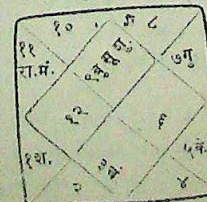 १० श ८
११
रा.मं.
९ बु सू शु
७गु
१२
६
१श.
३ चं
५के.
२
४